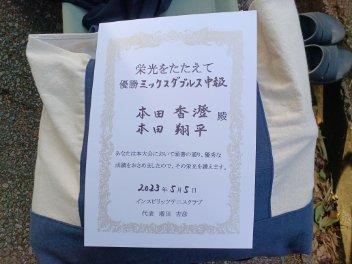 栄光をたたえて
優勝ミックスダブルス中級
本田 香澄 殿
本田 翔平
あなたは本大会において頭書の通り、優秀な
成績をおさめましたので、その栄光を讃えます。
2023年5月5日
インスピリッツテニスクラブ
代表